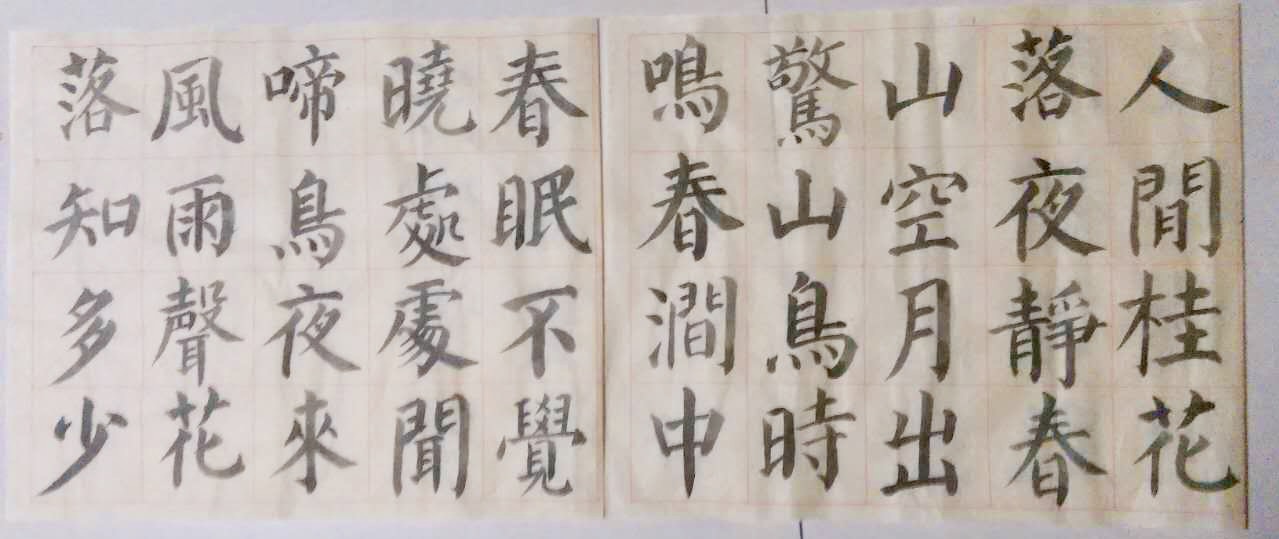 人閒桂花
落夜靜春
山空月出
驚山鳥時
鳴春澗中
春眠不覺
曉處處聞
啼鳥夜來
風雨聲花
落知多少